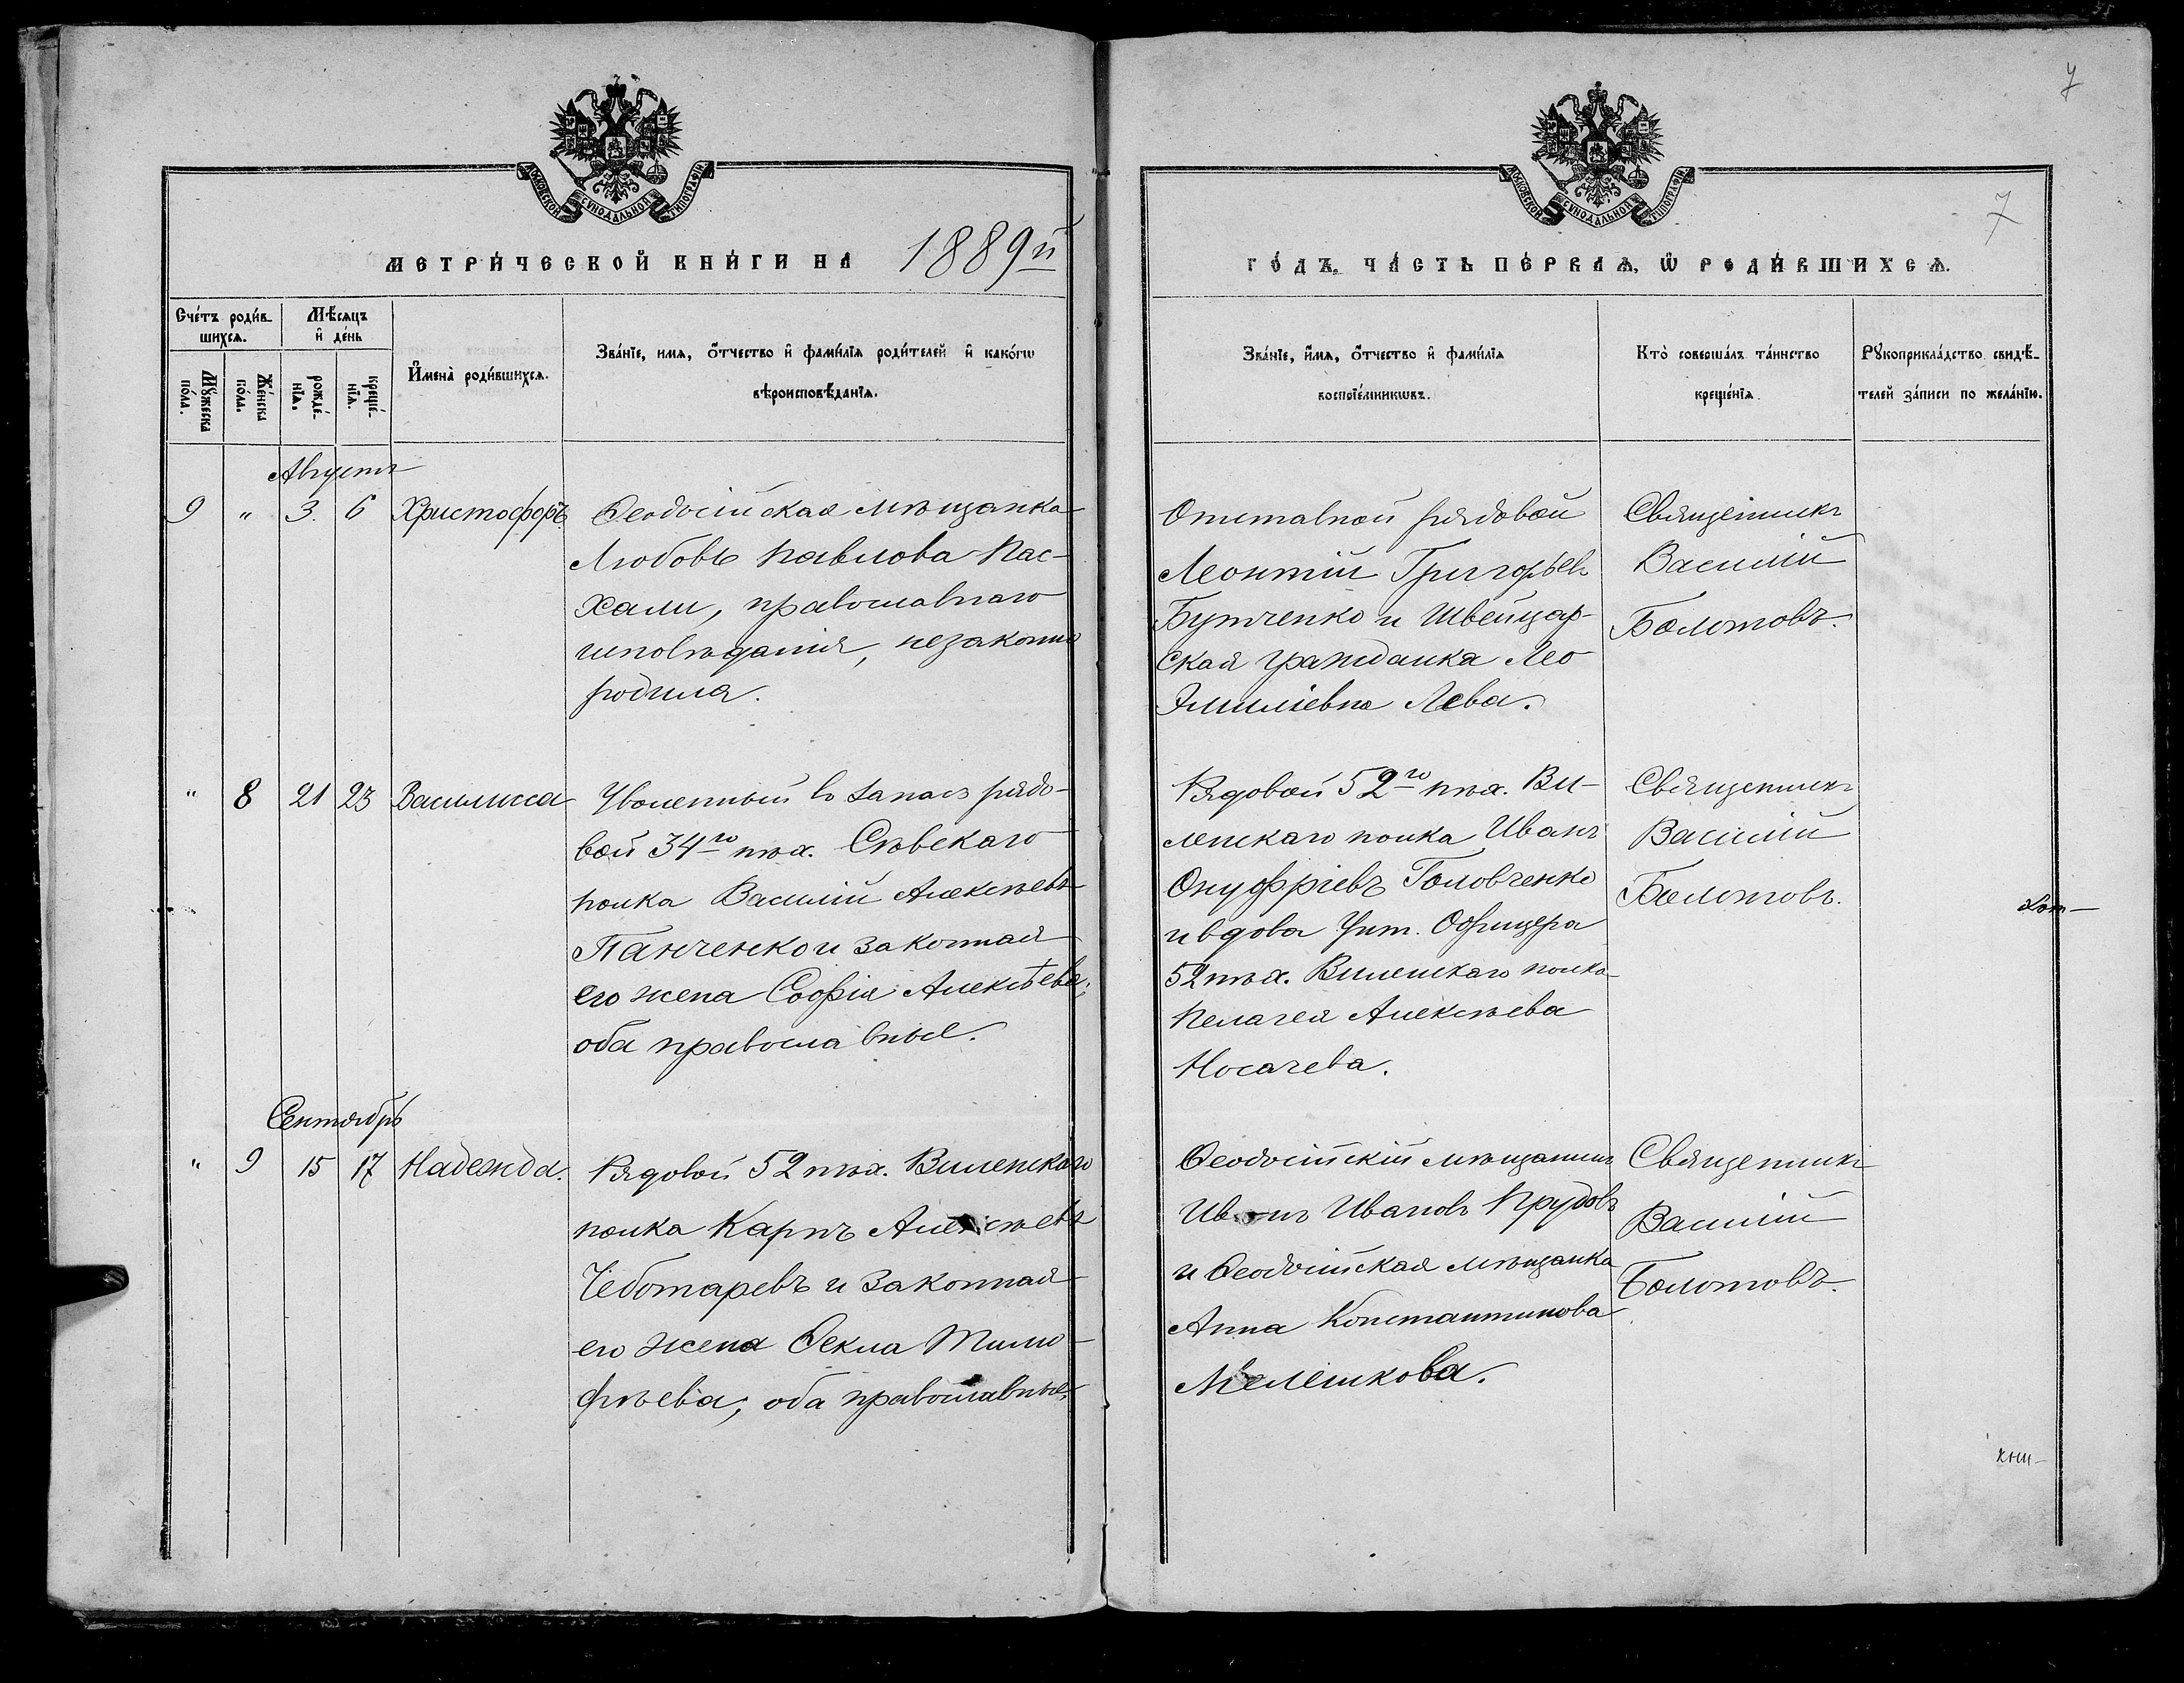 7
7
МОСКОВСКОЙ СѴНОДАЛЬНОЙ ТИПОГРАФІИ
МОСКОВСКОЙ СѴНОДАЛЬНОЙ ТИПОГРАФІИ
МЕТРИ́ЧЕСКОЙ КНИ́ГИ НА 1889й
ГО́ДЪ, ЧА́СТЬ ПЕ́РВАѦ, Ѽ РОДИ́ВШИХСѦ.
Сче́тъ роди́в-
шихсѧ.
Мꙋ́жеска по́ла.
Же́нска по́ла.
Мѣ́сѧцъ
и҆ де́нь
рожде́-
нїѧ.
креще́-
нїѧ.
И҆мена̀ роди́вшихсѧ.
Зва́нїе, имѧ, ѻ҆́тчество и҆ фами́лїѧ роди́телей и҆ како́гѡ
вѣроисповѣ́данїѧ.
Зва́нїе, и҆́мѧ, ѻ҆́тчество и҆ фами́лїѧ
воспрїе́мникѡвъ.
Кто̀ соверша́лъ та́инство
креще́нїѧ
Рꙋкоприкла́дство свидѣ́-
телей за́писи по жела́нїю.
Августъ
9 " 3. 6 Христофоръ
Ѳеодосійская мѣщанка
Любовь Павлова Пас-
хали, православнаго
исповѣданія, незаконно
родила.
Отставной рядовой
Леонтій Григорьевъ
Бутченко и Швейцар-
ская гражданка Лео
Эмиліевна Лева.
Священникъ
Василій
Болотовъ.
" 8 21 23 Василисса
Уволенный въ запасъ рядо-
вой 34го пѣх. Сѣвскаго
полка Василій Алексѣевъ
Панченко и законная
его жена Софія Алексѣева;
оба православные.
Рядовой 52го пѣх. Ви-
ленскаго полка Иванъ
Онуфріевъ Головченко
и вдова Унт. Офицера
52 пѣх. Виленскаго полка
Пелагея Алексѣева
Носачева.
Священникъ
Василій
Болотовъ.
Сентябрь
" 9 15 17 Надежда.
Рядовой 52 пѣх. Виленскаго
полка Карпъ Алексѣевъ
Чеботаревъ и законная
его жена Ѳекла Тимо-
фѣева; оба православные
Ѳеодосійскій мѣщанинъ
Иванъ Ивановъ Прудовъ
и Ѳеодосійская мѣщанка
Анна Константинова
Мелешкова.
Священникъ
Василій
Болотовъ.